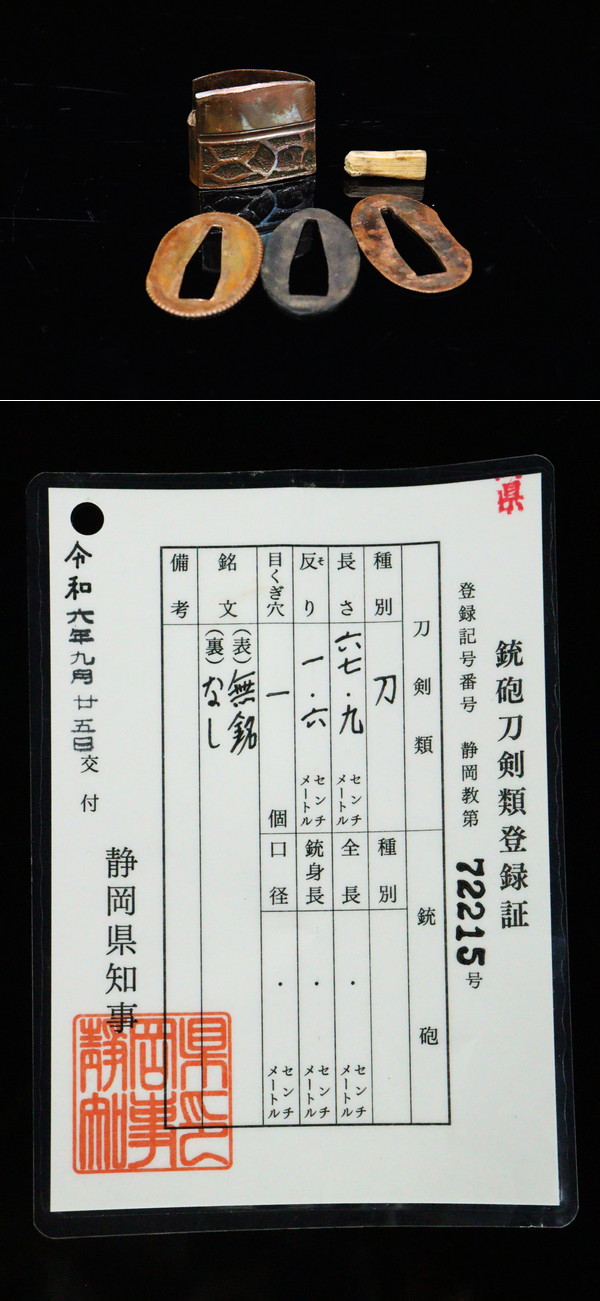 県
銃砲刀剣類登録証
登録記号番号 静岡教第 72215 号
刀剣類
種別 刀
長さ 六七・九 センチメートル
反り そ 一・六 センチメートル
目くぎ穴 一 個
銘文 (表) 無銘
(裏) なし
備考
銃砲
種別
全長 ・ センチメートル
銃身長 ・ センチメートル
口径 ・ センチメートル
令和六年九月廿五日交付
静岡県知事
静岡県知事印